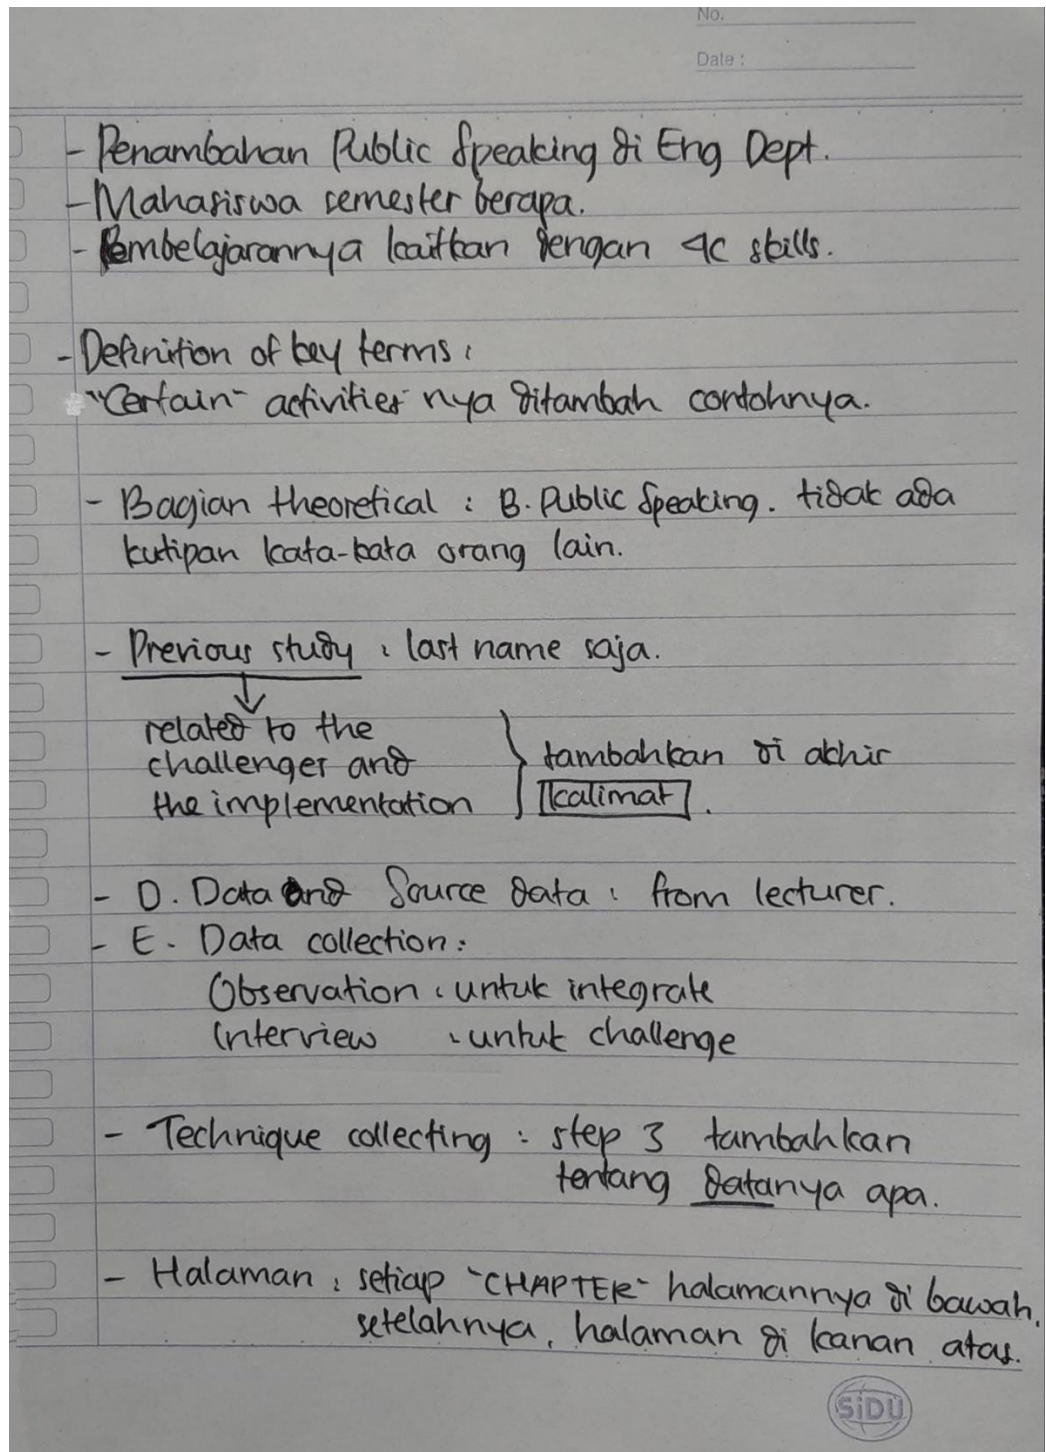 No.
Date :
- Penambahan Public Speaking di Eng Dept.
- Mahasiswa semester berapa.
- Pembelajarannya kaitkan dengan 4C skills.
- Definition of key terms :
"Certain" activities nya ditambah contohnya.
- Bagian theoretical : B. Public Speaking. tidak ada
kutipan kata-kata orang lain.
- Previous study : last name saja.
related to the
challenges and
the implementation
tambahkan di akhir
kalimat.
- D. Data and Source data : from lecturer.
- E. Data collection :
Observation : untuk integrate
Interview : untuk challenge
- Technique collecting : step 3 tambahkan
tentang datanya apa.
- Halaman : setiap "CHAPTER" halamannya di bawah.
setelahnya, halaman di kanan atas.
SiDU